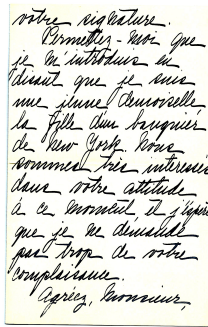 votre signature.
Permettez-moi que
je m'introduis en
disant que je suis
une jeune demoiselle
la fille d'un banquier
de New York. Nous
sommes très interessés
dans votre attitude
à ce moment, et j'espère
que je ne demande
pas trop de votre
complaisance.
Agréez, Monsieur,